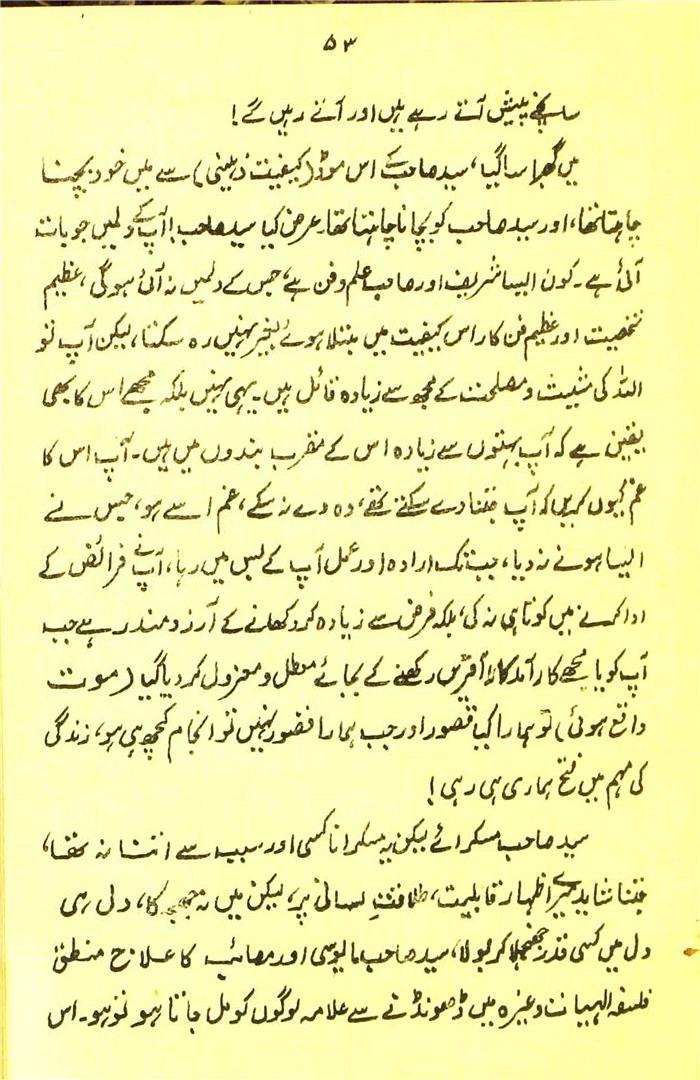 ۵۳
سانحے پیش آتے رہے ہیں اور آتے رہیں گے!
میں گھبرا سا گیا، سید صاحب کے اس موڈ (کیفیت ذہنی) سے میں خود بچنا
چاہتا تھا، اور سید صاحب کو بچانا چاہتا تھا، عرض کیا سید صاحب! آپ کے دلمیں جو بات
آئی ہے۔ کون ایسا شریف اور صاحب علم و فن ہے، جس کے دلمیں نہ آئی ہوگی، عظیم
شخصیت اور عظیم فن کار اس کیفیت میں مبتلا ہوئے بغیر نہیں رہ سکتا، لیکن آپ تو
اللہ کی مشیت و مصلحت کے مجھ سے زیادہ قائل ہیں۔ یہی نہیں بلکہ مجھے اس کا بھی
یقین ہے کہ آپ بہتوں سے زیادہ اس کے مقرب بندوں میں ہیں۔ آپ اس کا
غم کیوں کریں کہ آپ جتنا دے سکتے تھے، وہ دے نہ سکے، غم اسے ہو، جس نے
ایسا ہونے نہ دیا، جب تک ارادہ اور عمل آپ کے بس میں رہا، آپ نے فرائض کے
ادا کرنے میں کوتاہی نہ کی، بلکہ فرض سے زیادہ کر دکھانے کے آرزو مند رہے جب
آپ کو یا مجھے کار آمد کار آفریں رکھنے کے بجائے معطل و معزول کر دیا گیا (موت
واقع ہوئی) تو ہمارا کیا قصور اور جب ہمارا قصور نہیں تو انجام کچھ ہی ہو، زندگی
کی مہم میں فتح ہماری ہی رہی!
سید صاحب مسکرائے لیکن یہ مسکرانا کسی اور سبب سے اتنا نہ تھا،
جتنا شاید میرے اظہار قابلیت، طلاقتِ لسانی پر، لیکن میں نہ جھجھکا، دل ہی
دل میں کسی قدر جھنجھلا کر بولا، سید صاحب مایوسی اور مصائب کا علاج منطق
فلسفہ الہیات وغیرہ میں ڈھونڈنے سے علامہ لوگوں کو مل جاتا ہو تو ہو۔ اس